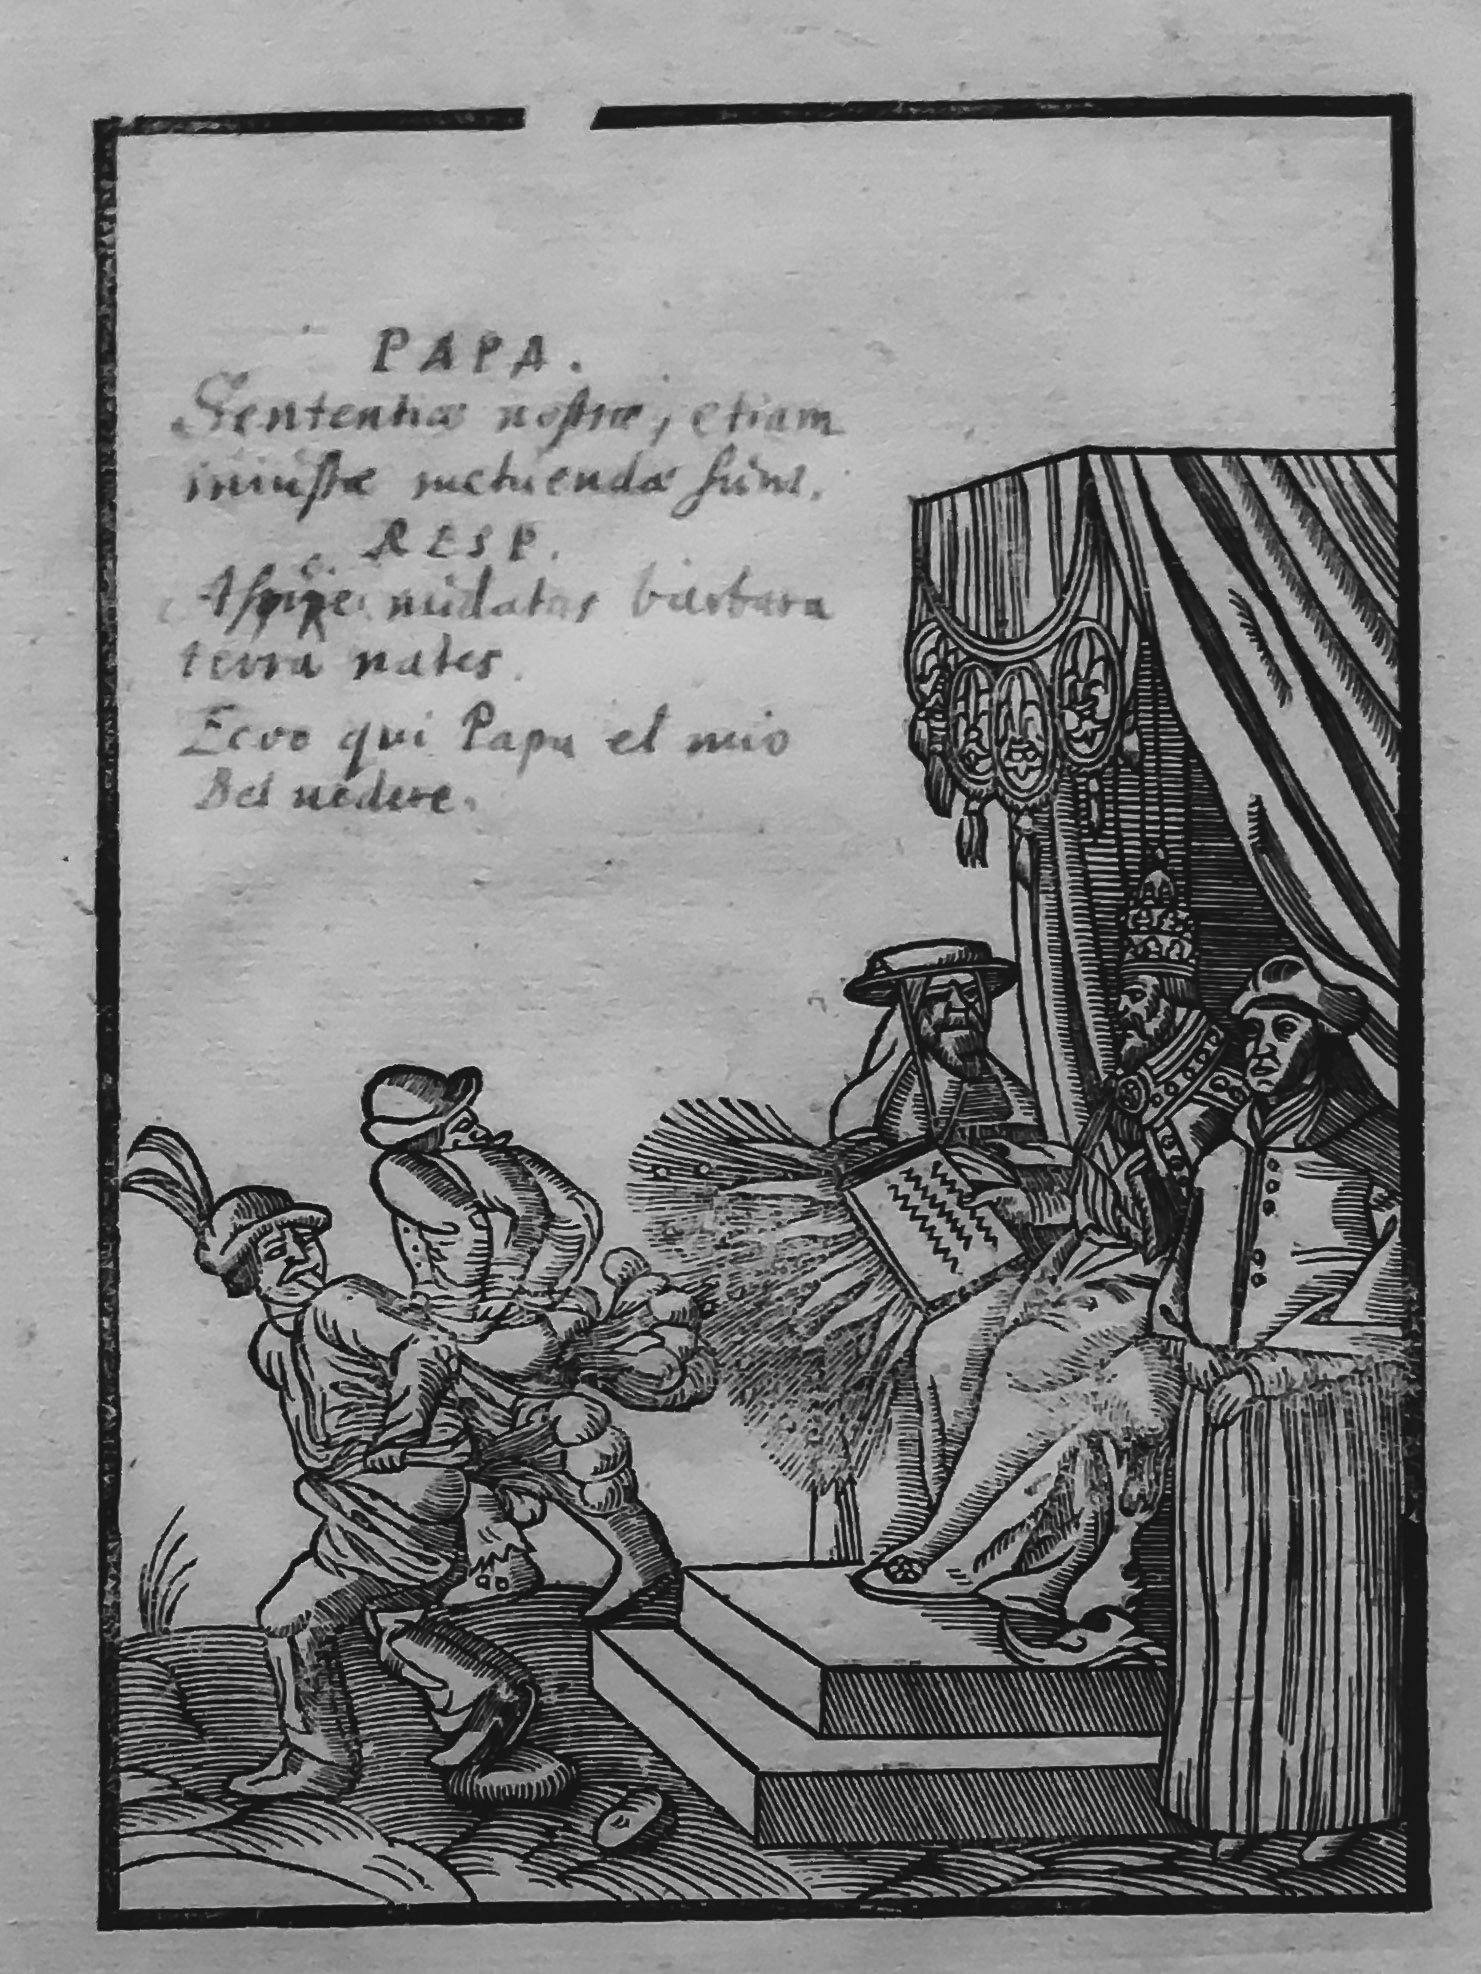 PAPA.
Sententiæ nostræ, etiam
iniustæ metuendæ sunt.
RESP.
Aspice nudatas barbara
terra nates.
Ecco qui Papa el mio
Bel uedere.